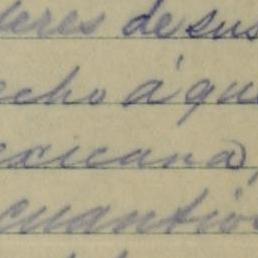 deres de sus
echo á que
exicana,
cuantio